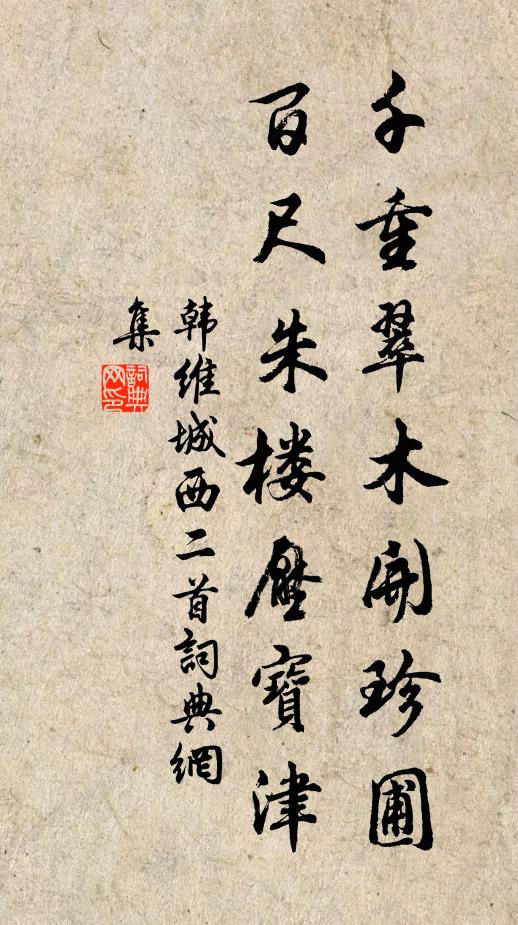 千重翠木開珍圃
百尺朱楼壓寶津
韩维城西二首詞典網
集
詞典網印